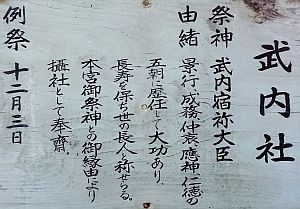 武内社
祭神 武内宿祢大臣
由緒 景行、成務、仲哀、應神、仁徳の
五朝に歴任して大功あり、
長寿を保ち世の長人と称せらる。
本宮御祭神との御縁由により
攝社として奉齋。
例祭 十二月三日